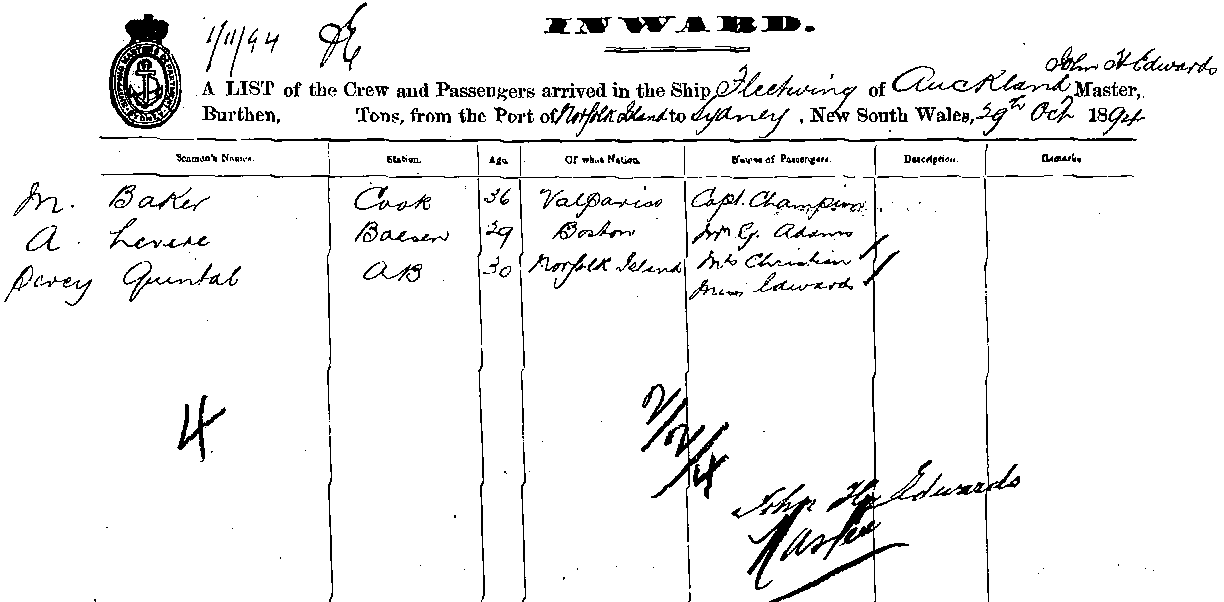 INWARD.
1/11/94
John H Edwards
A LIST of the Crew and Passengers arrived in the Ship Fleetwing of Auckland Master,
Burthen, Tons, from the Port of Norfolk Island to Sydney, New South Wales, 29th Oct 1894
Seaman's Names. Station. Age. Of what Nation. Names of Passengers. Description. Remarks
M. Baker Cook 36 Valpariso Capt. Champion
A. Levere 29 Boston Mr G. Adams
Quintal AB 30 Norfolk Island Mrs Christian
Miss Edwards
4
2/2/4
John Hy Edwards
Master